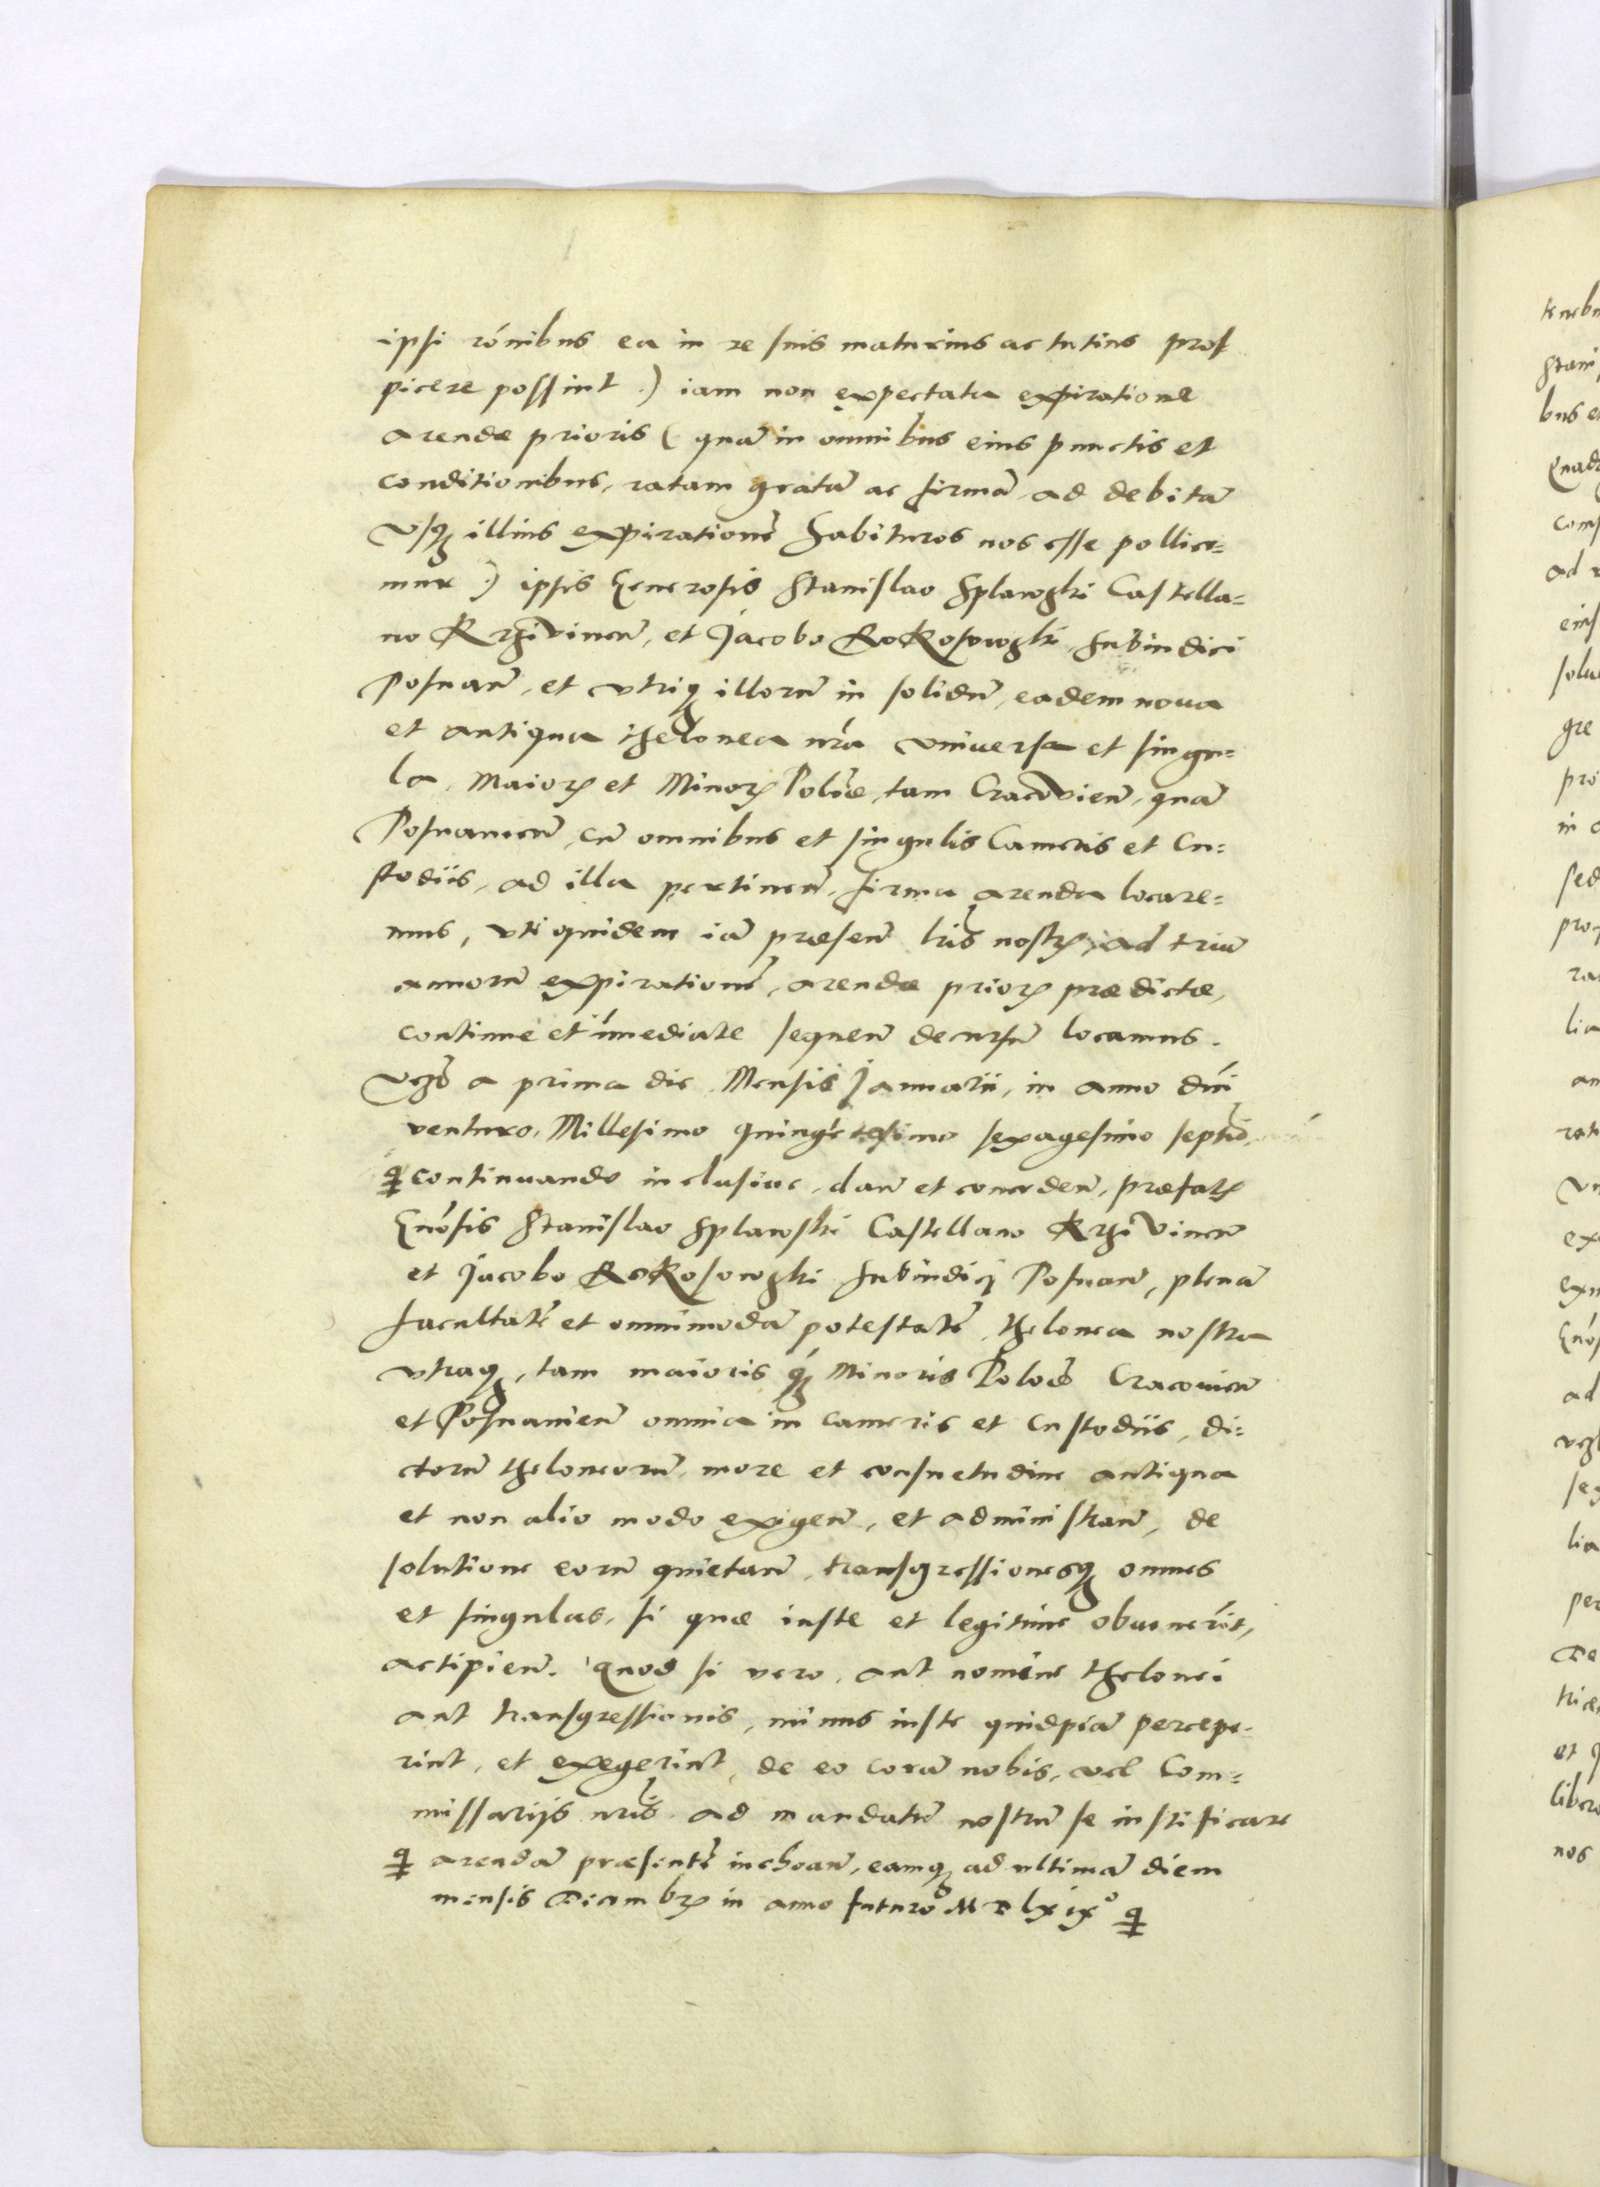 ipsi rónibus ea in re suis maturius ac tutius pros
picere possint .) iam non expectata expiratione
arendæ prioris ( quã in omnibus eius punctis et
conditionibus, ratam gratã ac firmã ad debitã
vsqꝫ illius expirationẽ habituros nos esse pollice=
mur .) ipsis Generosis Stanislao Splawski Castella=
no Krzivineñ, et Jacobo Rokosowski Subiudici
Posnañ, et vtriqꝫ illorũ in solidũ, eadem noua
et antiqua thelonea nra vniuersa et singu=
la, Maiorꝭ et Minorꝭ Polniæ, tam Cracovieñ, quã
Posnanieñ, cũ omnibus et singulis Cameris et Cu=
stodiis, ad illa pertineñ, firma arenda locare=
mus, vti quidem iã præseñ lris nostrꝭ, ad triũ
annorũ expirationẽ, arendæ priorꝭ prædictæ,
continue et imediate sequeñ decursũ locamus.
Vczo a prima die Mensis Januarii, in anno dni
venturo, Millesimo quingẽtesimo sexagesimo septio,
continuando inclusiue, dañ et concedeñ, præfatꝭ
Gnosis Stanislao Splawski Castellano Krzivineñ
et Jacobo Rokosowski Subiudicj Posnañ, plenã
facultatẽ et omnimodã potestatẽ, thelonea nostra
vtraqꝫ, tam maioris qꝫ Minoris Poloniæ Cracouieñ
et Posnanieñ omnia in cameris et custodiis, di=
ctorũ theloneorũ, more et consuetudine antiqua
et non alio modo exigeñ, et administrañ, de
solutione eorũ quietañ, transgressionesqꝫ omnes
et singulas, si quæ iuste et legitime obuenerint,
accipieñ. Quod si vero, aut nomine thelonei
aut transgressionis, minus iuste quidpiã percepe=
rint, et exegerint, de eo corã nobis, vel Com=
missarijs nris ad mandatũ nostrũ se iustificare
arendã præsentẽ inchoañ, eamqꝫ ad ultimã diem
mensis Decembrꝭ in anno futuro MDlxixº